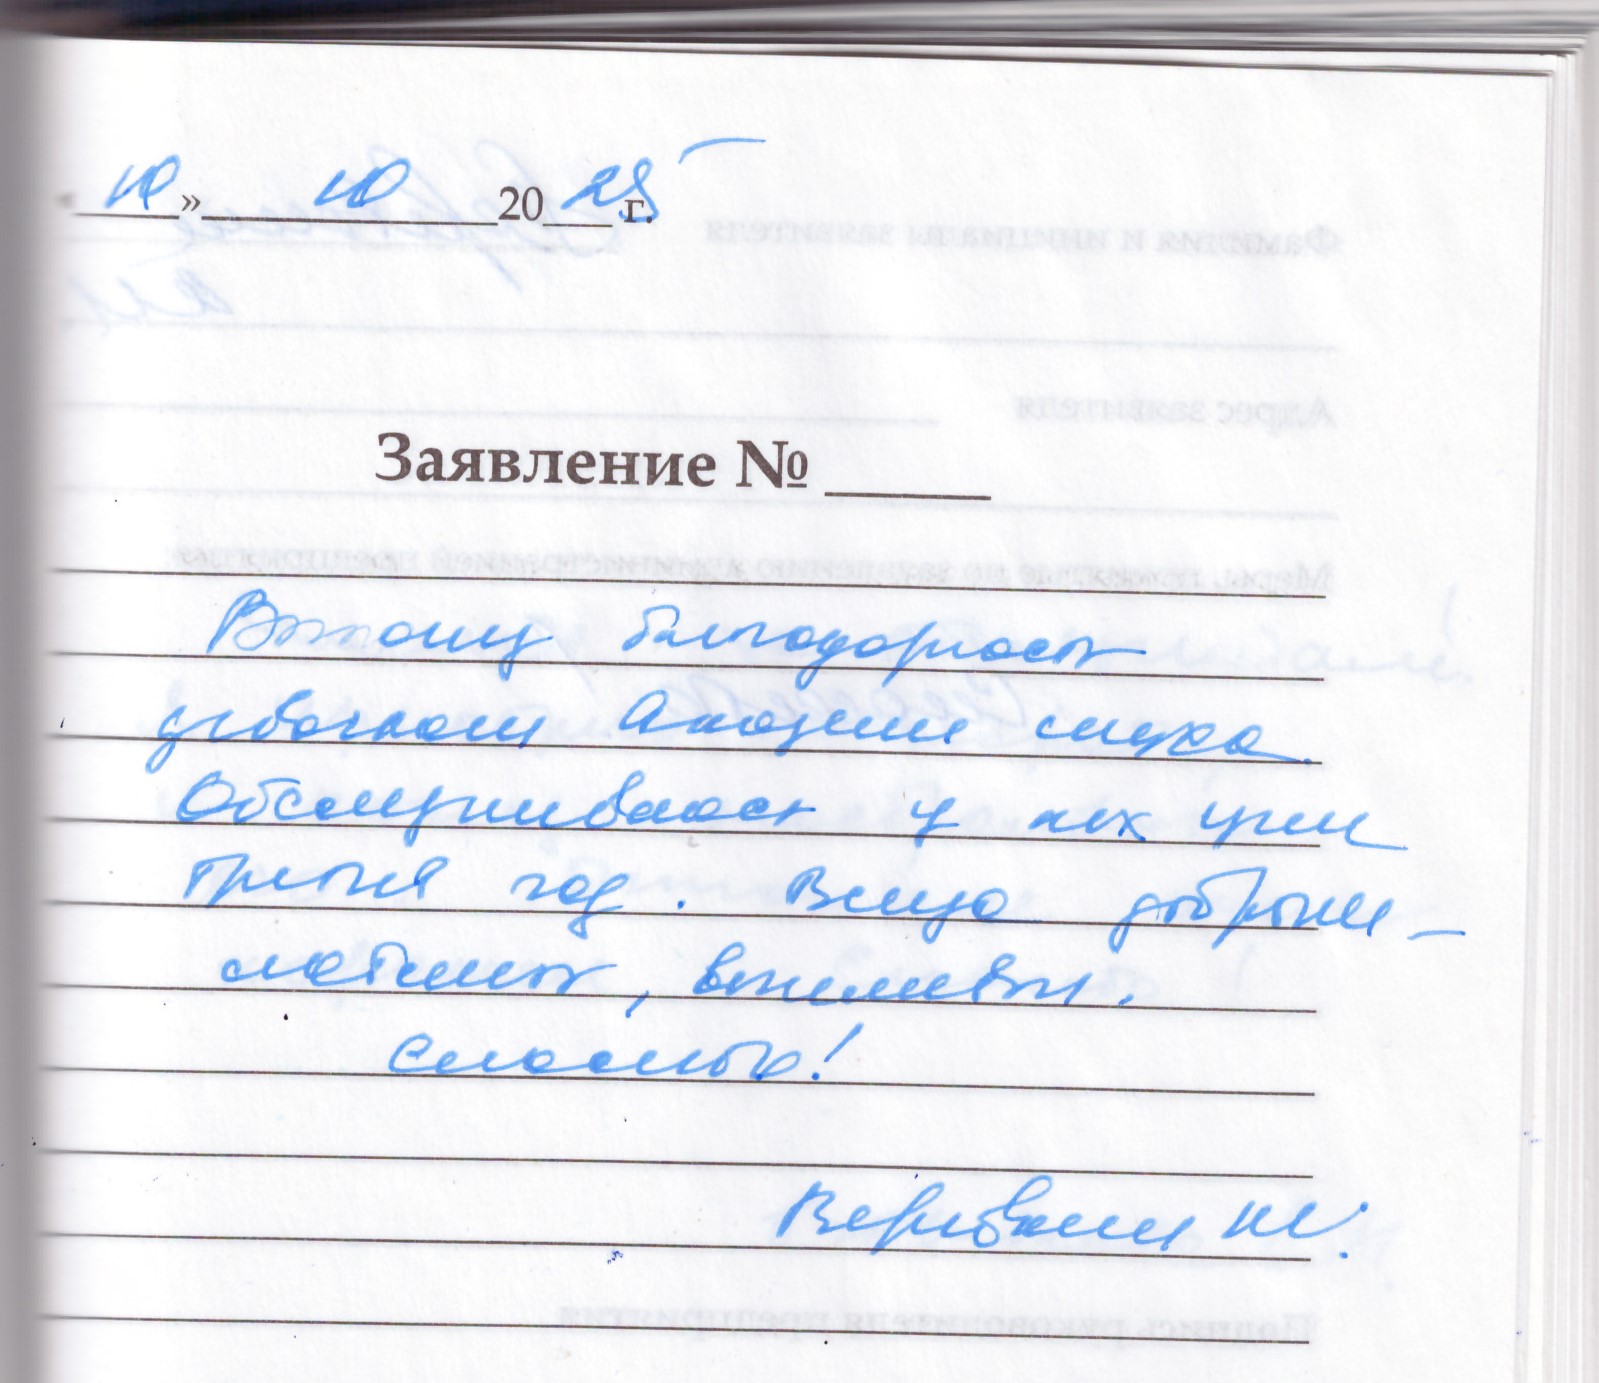 10 » 10 20 25 г.
Заявление № ____
Выношу благодарность
девочкам Академии слуха.
Обслуживаюсь у них уже
третий год. Всегда доброже-
лательны, внимательны.
Спасибо!